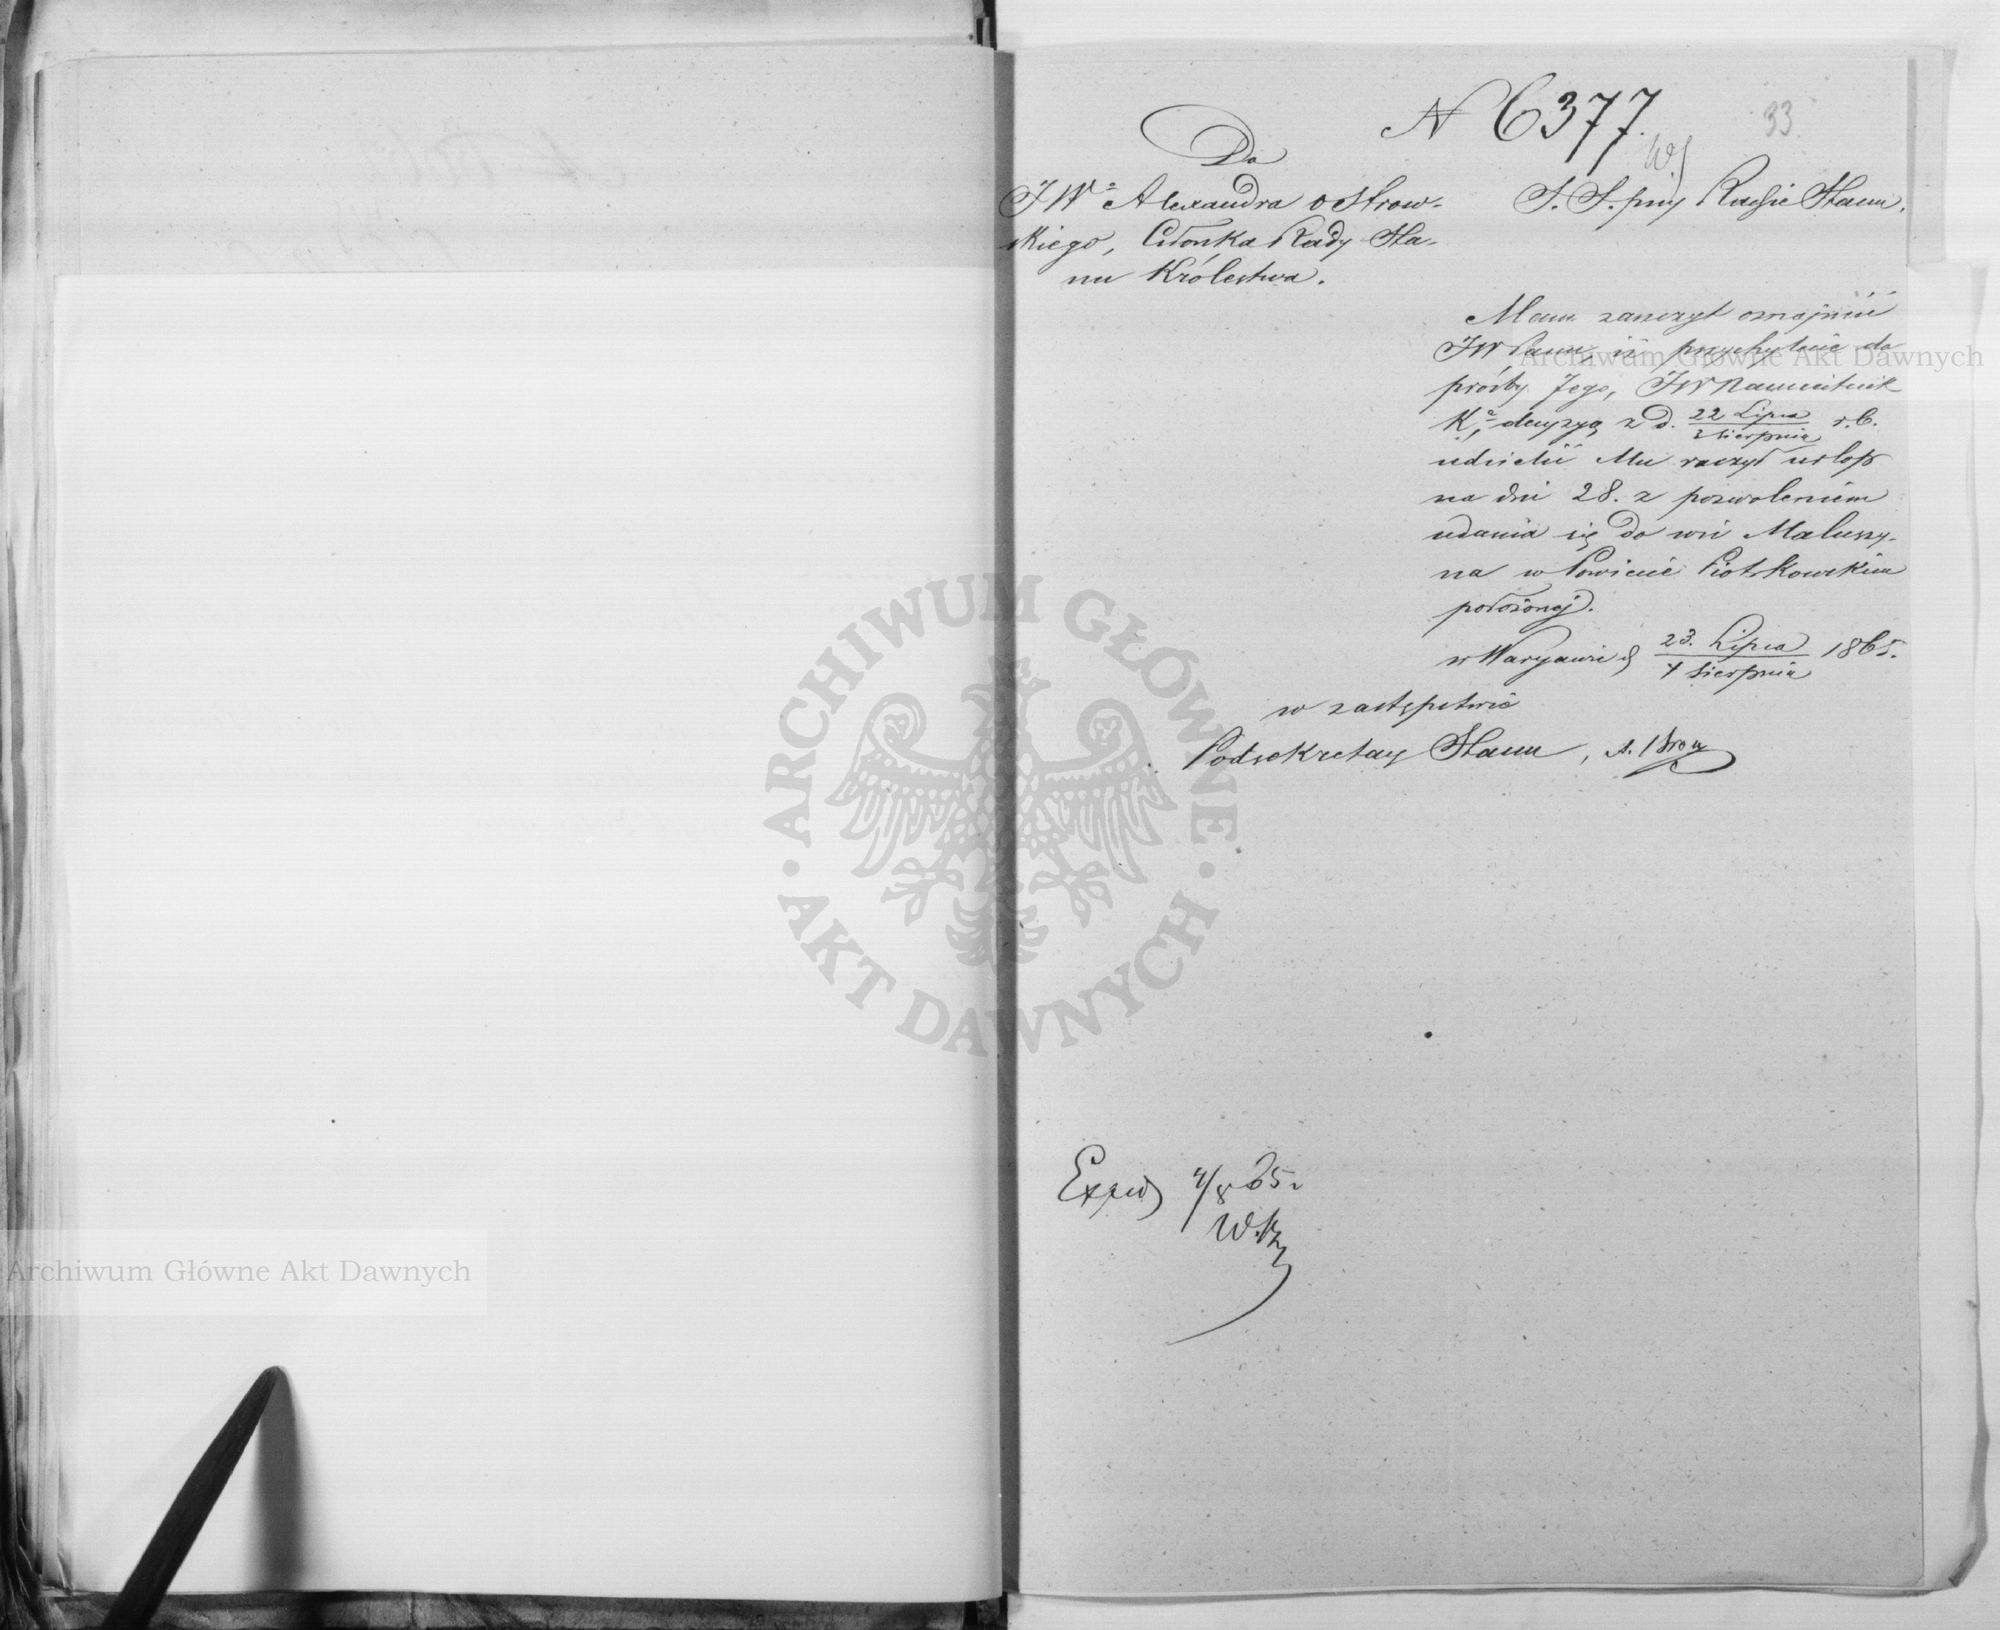 N 6377.
33
Do
JWo Alexandra Ostrow-
skiego, Członka Rady Sta-
nu Królestwa.
S. S. przy Radzie Stanu.
Mam zaszczyt oznajmić
JW Panu, iż przychylnie do
prośby Jego, JW Namiestnik
Ko, decyzyą z d. 22 Lipca / 3 Sierpnia r. b.
udzielić Mu raczył urlop
na dni 28. z pozwoleniem
udania się do wsi Maluszy-
na w Powiecie Piotrkowskim
położonej.
w Warszawie d 23. Lipca / 4 Sierpnia 1865.
w zastępstwie
Podsekretarz Stanu,
Exped 4/8 65 r
ARCHIWUM GŁÓWNE · AKT DAWNYCH ·
Archiwum Główne Akt Dawnych
Archiwum Główne Akt Dawnych